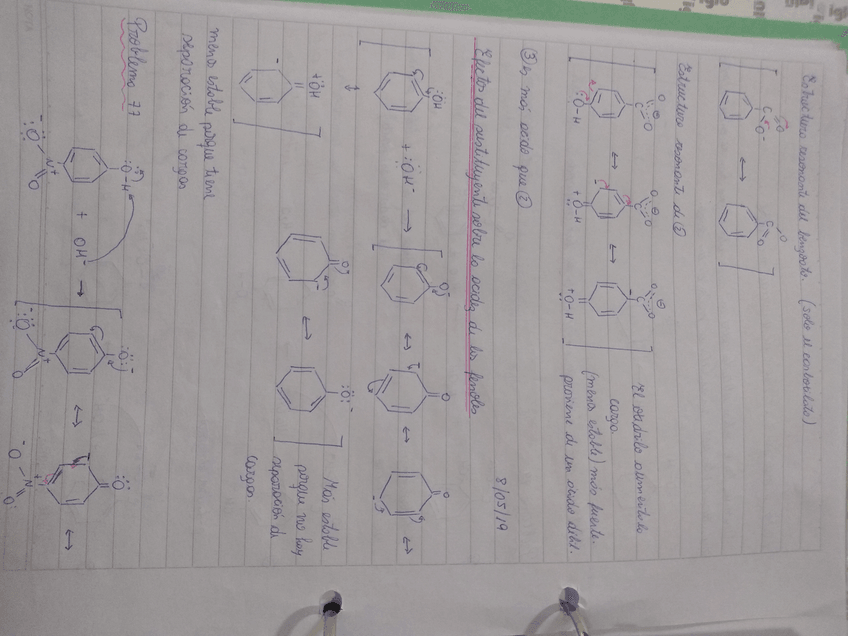 Estructura resonante del benzoato. (solo el carboxilato)
Estructura resonante de ②
El oxidrilo aumenta la
carga
(menos estable) más fuerte.
proviene de un ácido débil.
③ Es más ácido que ②
8/05/19
Efectos del sustituyente sobre la acidez de los fenoles
ÖH
+ :ÖH⁻ →
Más estable
porque no hay
separación de
cargas
menos estable porque tiene
separación de cargas
Problema 77
+ OH⁻ →